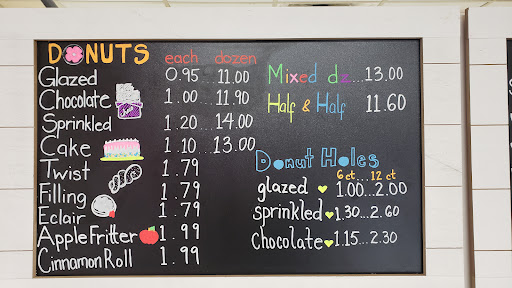 DONUTS each dozen
Glazed 0.95...11.00
Chocolate 1.00...11.90
Sprinkled 1.20...14.00
Cake 1.10...13.00
Twist 1.79
Filling 1.79
Eclair 1.79
Apple Fritter 1.99
Cinnamon Roll 1.99
Mixed dz...13.00
Half & Half 11.60
Donut Holes
6ct...12 ct
glazed 1.00...2.00
sprinkled 1.30...2.60
chocolate 1.15...2.30